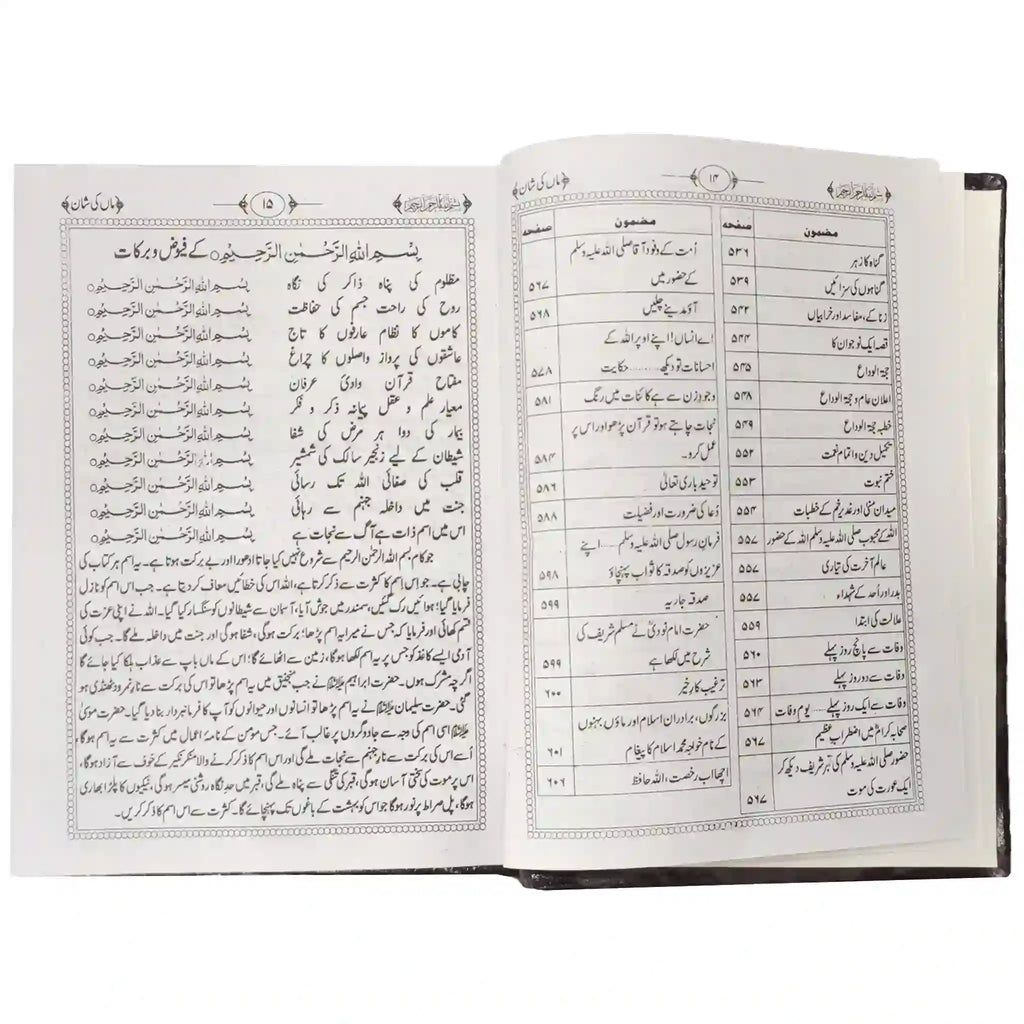 بسم الله الرحمن الرحيم ۱۴ ماں کی شان
مضمون صفحہ
گناہ کا زہر ۵۳۶
گناہوں کی سزائیں ۵۳۹
زنا کے، مفاسد اور خرابیاں ۵۴۲
قصہ ایک نوجوان کا ۵۴۴
حجۃ الوداع ۵۴۵
اعلان عام و حجۃ الوداع ۵۴۸
خطبہ حجۃ الوداع ۵۴۹
تکمیل دین و اتمام نعمت ۵۵۲
ختم نبوت ۵۵۳
میدان منٰی اور غدیر خم کے خطبات ۵۵۴
اللہ کے محبوب صلی اللہ علیہ وسلم اللہ کے حضور ۵۵۷
عالم آخرت کی تیاری ۵۵۷
بدر اور اُحد کے شہداء ۵۵۷
علالت کی ابتدا ۵۵۹
وفات سے پانچ روز پہلے ۵۶۰
وفات سے دو روز پہلے ۵۶۳
وفات سے ایک روز پہلے ..... یوم وفات ۵۶۴
صحابہ کرامؓ میں اضطرابِ عظیم ۵۶۷
حضور صلی اللہ علیہ وسلم کی قبر شریف دیکھ کر
ایک عورت کی موت ۵۶۷
مضمون صفحہ
اُمت کے وفود آقا صلی اللہ علیہ وسلم
کے حضور میں ۵۶۷
آؤ مدینے چلیں ۵۶۸
اے انساں! اپنے اوپر اللہ کے
احسانات تو دیکھ ........ حکایت ۵۷۸
وجودِ زن سے ہے کائنات میں رنگ ۵۸۱
نجات چاہتے ہو تو قرآن پڑھو اور اس پر
عمل کرو۔ ۵۸۴
توحید باری تعالیٰ ۵۸۶
دُعا کی ضرورت اور فضیلت ۵۸۸
فرمانِ رسول صلی اللہ علیہ وسلم ..... اپنے
عزیزوں کو صدقہ کا ثواب پہنچاؤ ۵۹۸
صدقہ جاریہ ۵۹۹
حضرت امام نوویؒ نے مسلم شریف کی
شرح میں لکھا ہے ۵۹۹
ترغیب کارِ خیر ۶۰۰
بزرگوں، برادران اسلام اور ماؤں بہنوں
کے نام خواجہ محمد اسلام کا پیغام ۶۰۱
اچھا اب رخصت، اللہ حافظ ۶۰۶
بسم الله الرحمن الرحيم ۱۵ ماں کی شان
بِسْمِ اللهِ الرَّحْمٰنِ الرَّحِيْمِ○ کے فیوض و برکات
مظلوم کی پناہ ذاکر کی نگاہ بِسْمِ اللهِ الرَّحْمٰنِ الرَّحِيْمِ○
روح کی راحت جسم کی حفاظت بِسْمِ اللهِ الرَّحْمٰنِ الرَّحِيْمِ○
کاموں کا نظام عارفوں کا تاج بِسْمِ اللهِ الرَّحْمٰنِ الرَّحِيْمِ○
عاشقوں کی پرواز واصلوں کا چراغ بِسْمِ اللهِ الرَّحْمٰنِ الرَّحِيْمِ○
مفتاح قرآن وادیٔ عرفان بِسْمِ اللهِ الرَّحْمٰنِ الرَّحِيْمِ○
معیار علم و عقل پیمانہ ذکر و فکر بِسْمِ اللهِ الرَّحْمٰنِ الرَّحِيْمِ○
بیمار کی دوا ہر مرض کی شفا بِسْمِ اللهِ الرَّحْمٰنِ الرَّحِيْمِ○
شیطان کے لیے زنجیر سالک کی شمشیر بِسْمِ اللهِ الرَّحْمٰنِ الرَّحِيْمِ○
قلب کی صفائی اللہ تک رسائی بِسْمِ اللهِ الرَّحْمٰنِ الرَّحِيْمِ○
جنت میں داخلہ جہنم سے رہائی بِسْمِ اللهِ الرَّحْمٰنِ الرَّحِيْمِ○
اس میں اسم ذات ہے آگ سے نجات ہے بِسْمِ اللهِ الرَّحْمٰنِ الرَّحِيْمِ○
جو کام، بسم اللہ الرحمٰن الرحیم سے شروع نہیں کیا جاتا ادھورا اور بے برکت ہوتا ہے۔ یہ اسم ہر کتاب کی
چابی ہے۔ جو اس اسم کا کثرت سے ذکر کرتا ہے، اللہ اس کی خطائیں معاف کر دیتا ہے۔ جب اس اسم کو نازل
فرمایا گیا؛ ہوائیں رک گئیں، سمندر میں جوش آیا، آسمان سے شیطانوں کو سنگسار کیا گیا۔ اللہ نے اپنی عزت کی
قسم کھائی اور فرمایا کہ جس نے میرا یہ اسم پڑھا؛ برکت ہوگی، شفا ہوگی اور جنت میں داخلہ ملے گا۔ جب کوئی
آدمی ایسے کاغذ کو جس پر یہ اسم لکھا ہو گا، زمین سے اٹھائے گا؛ اس کے ماں باپ سے عذاب ہلکا کیا جائے گا
اگرچہ مشرک ہوں۔ حضرت ابراہیم علیہ السلام نے جب منجنیق میں یہ اسم پڑھا تو اس کی برکت سے نارِ نمرود ٹھنڈی ہو
گئی۔ حضرت سلیمان علیہ السلام نے یہ اسم پڑھا تو انسانوں اور حیوانوں کو آپ کا فرمانبردار بنا دیا گیا۔ حضرت موسیٰ
علیہ السلام اسی اسم کی وجہ سے جادوگروں پر غالب آئے۔ جس مؤمن کے نامۂ اعمال میں کثرت سے یہ اسم ہوگا،
اُسے اس کی برکت سے نارِ جہنم سے نجات ملے گی اور اس اسم کا ذکر کرنے والا منکر نکیر کے خوف سے آزاد ہوگا،
اس پر موت کی سختی آسان ہوگی، قبر کی تنگی سے پناہ ملے گی، قبر میں حدِ نگاہ روشنی میسر ہوگی، نیکیوں کا پلڑا بھاری
ہوگا، پل صراط پر نور ہوگا جو اس کو بہشت کے باغوں تک پہنچائے گا۔ کثرت سے اس اسم کا ذکر کریں۔